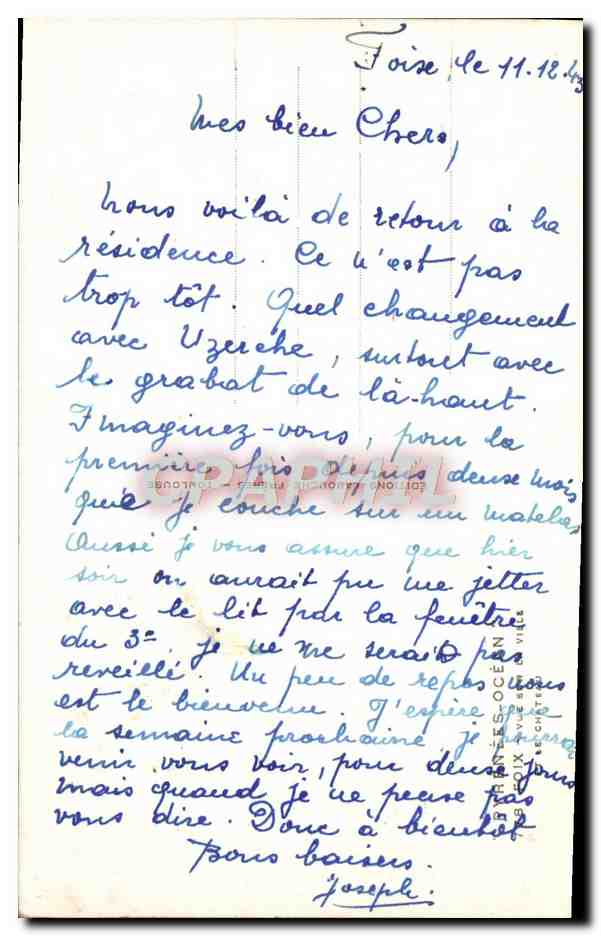 Foix, le 11.12.43
Mes bien Chers,
Nous voilà de retour à la
résidence. Ce n'est pas
trop tôt. Quel changement
avec Uzerche, surtout avec
le grabat de là-haut.
Imaginez-vous, pour la
première fois depuis deux mois
que je couche sur un matelas
Aussi je vous assure que hier
soir on aurait pu me jetter
avec le lit par la fenêtre
du 3e je ne me serais pas
reveillé. Un peu de repos nous
est le bienvenu. J'espère que
la semaine prochaine je pourrai
venir vous voir, pour deux jours
mais quand je ne peuse pas
vous dire. Donc à bientôt
Bons baisers.
Joseph.
ÉDITIONS LABOUCHE FRÈRES - TOULOUSE
CPAPHIL
PYRÉNÉES-OCÉAN
FOIX VUE SUR LA VILLE
LE CHATEAU